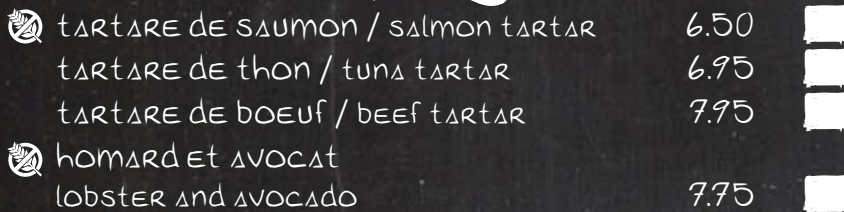 tartare de saumon / salmon tartar 6.50
tartare de thon / tuna tartar 6.95
tartare de boeuf / beef tartar 7.95
homard et avocat
lobster and avocado 7.75